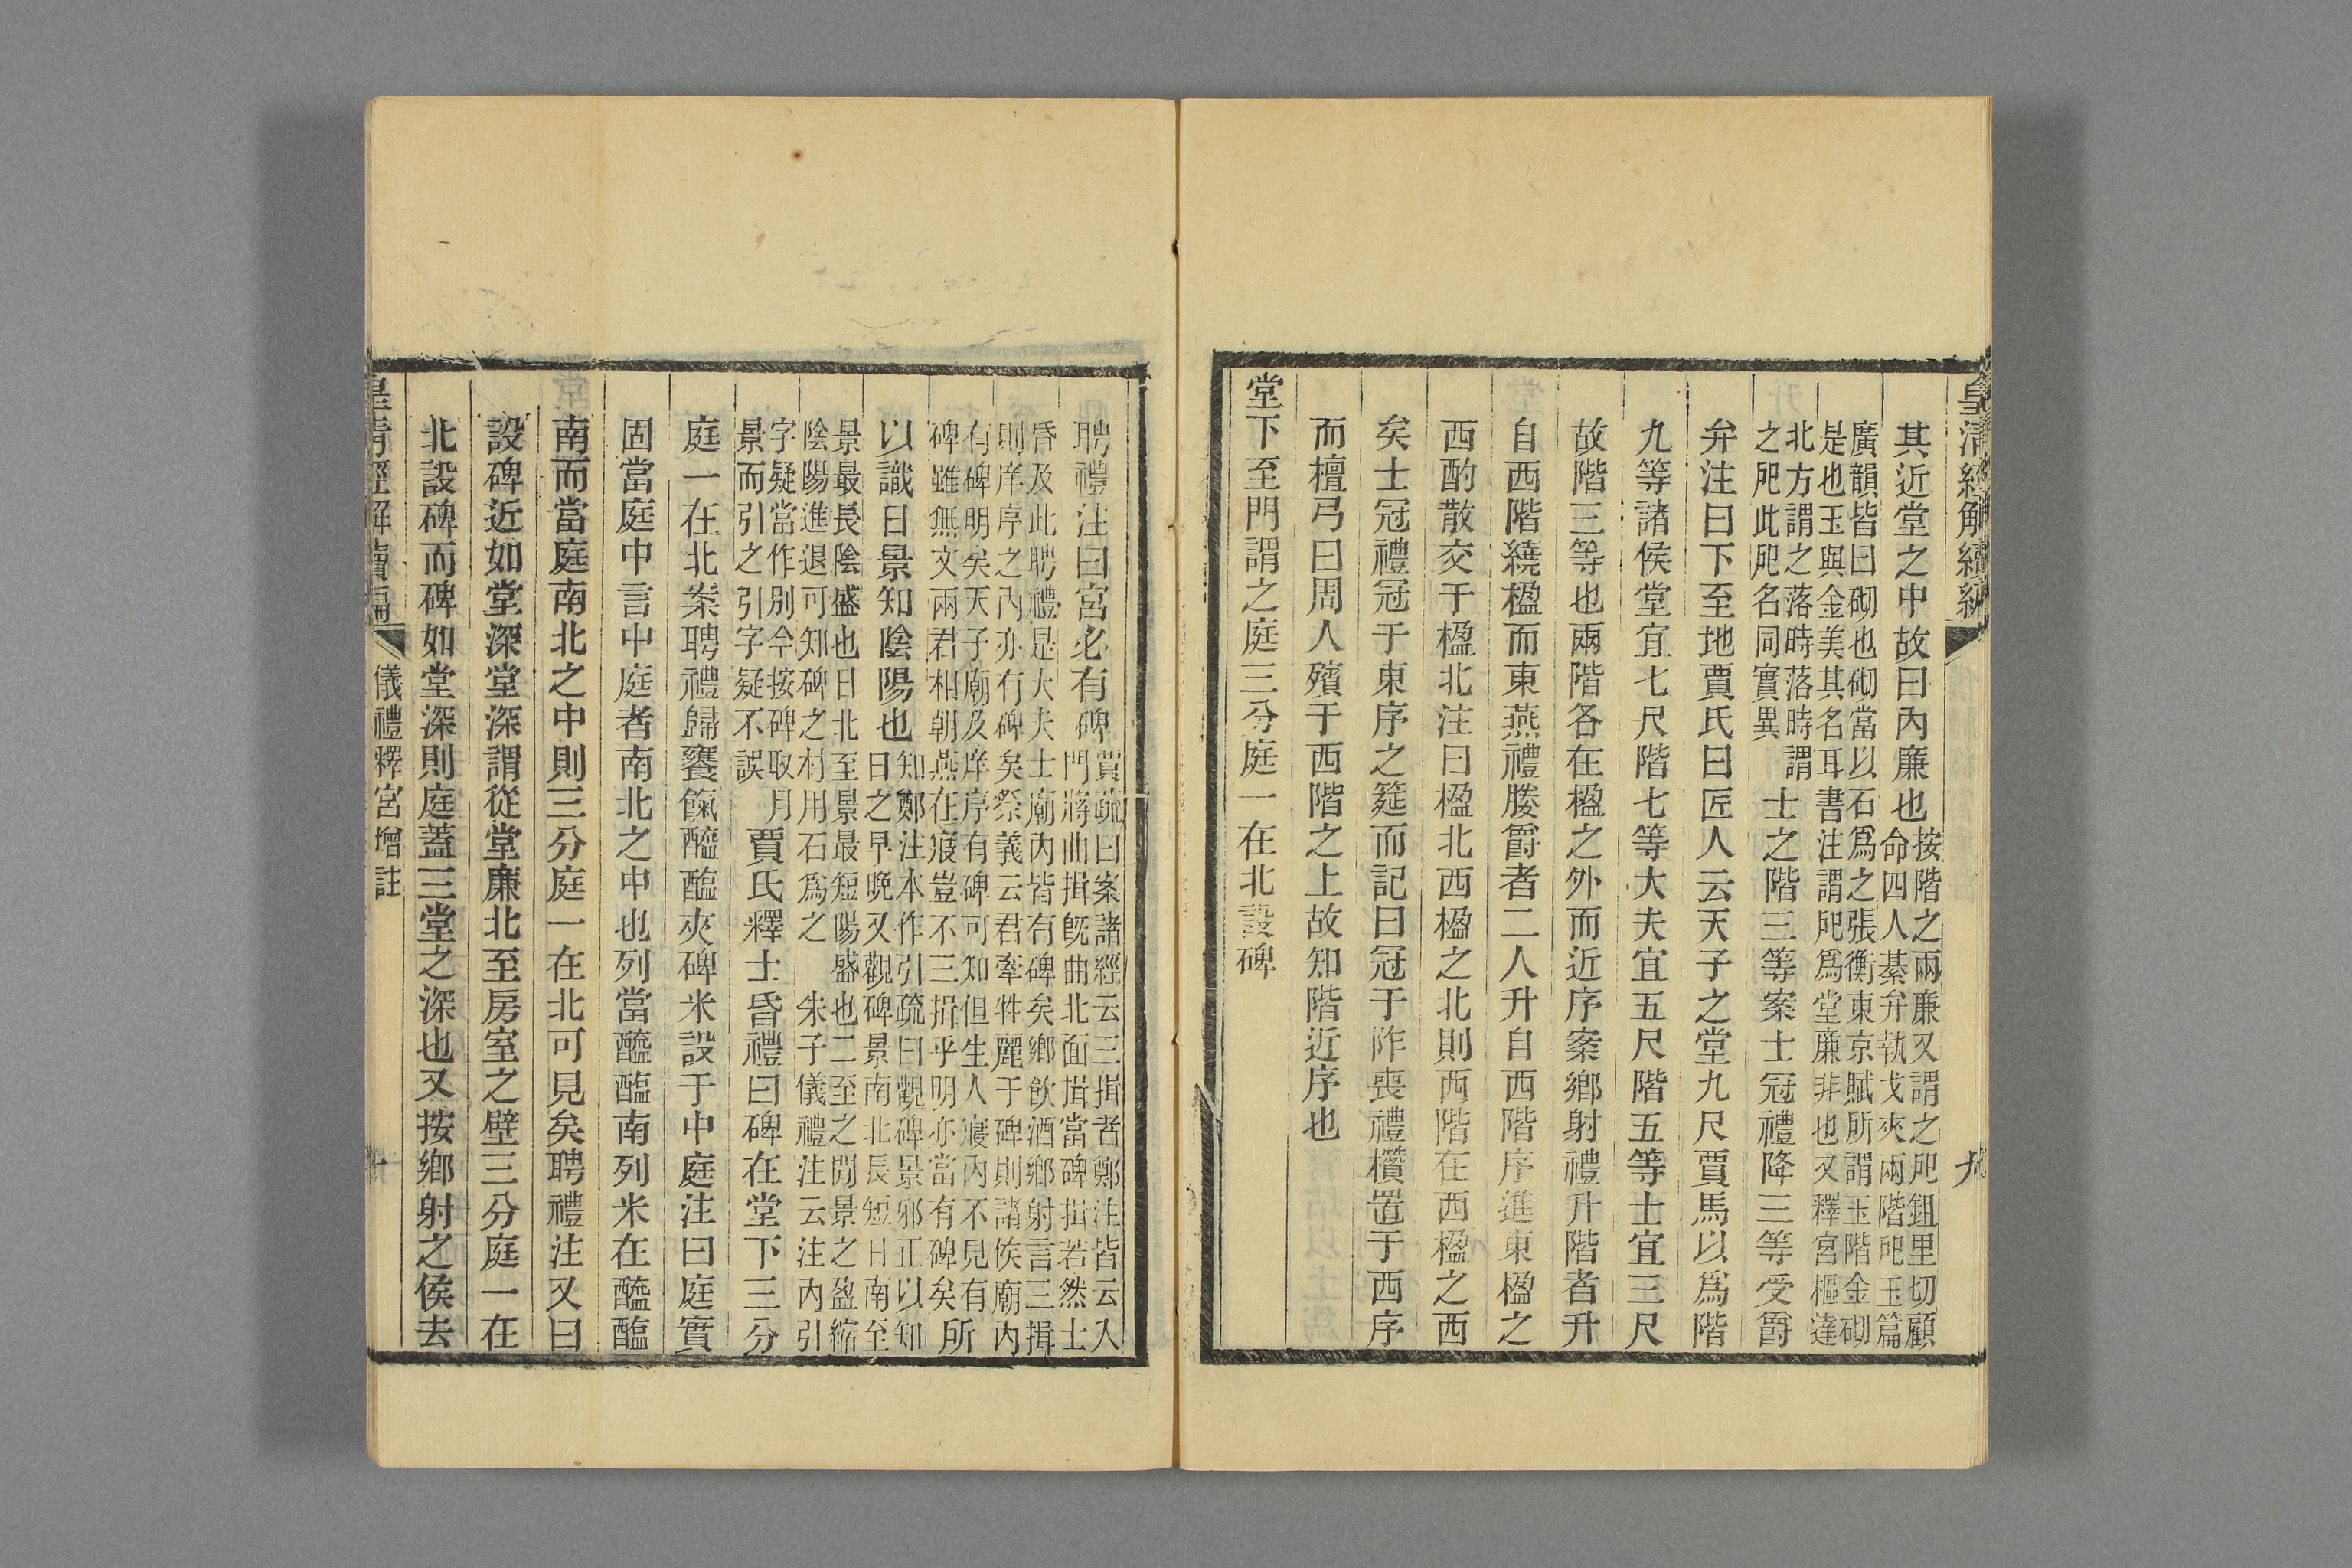 皇清經解續編　九
其近堂之中故曰內廉也按階之兩廉又謂之戺鉏里切顧
命四人綦弁執戈夾兩階戺玉篇
廣韻皆曰砌也砌當以石爲之張衡東京賦所謂玉階金砌
是也玉與金美其名耳書注謂戺爲堂廉非也又釋宮樞達
北方謂之落時落時謂
之戺此戺名同實異士之階三等案士冠禮降三等受爵
弁注曰下至地賈氏曰匠人云天子之堂九尺賈馬以爲階
九等諸侯堂宜七尺階七等大夫宜五尺階五等士宜三尺
故階三等也兩階各在楹之外而近序案鄉射禮升階者升
自西階繞楹而東燕禮媵爵者二人升自西階序進東楹之
西酌散交于楹北注曰楹北西楹之北則西階在西楹之西
矣士冠禮冠于東序之筵而記曰冠于阼喪禮欑置于西序
而檀弓曰周人殯于西階之上故知階近序也
堂下至門謂之庭三分庭一在北設碑
聘禮注曰宮必有碑賈疏曰案諸經云三揖者鄭注皆云入
門將曲揖旣曲北面揖當碑揖若然士
昏及此聘禮是大夫士廟內皆有碑矣鄉飲酒鄉射言三揖
則庠序之內亦有碑矣祭義云君牽牲麗于碑則諸侯廟內
有碑明矣天子廟及庠序有碑可知但生人寢內不見有
碑雖無文兩君相朝燕在寢豈不三揖乎明亦當有碑矣所
以識日景知陰陽也知鄭注本作引疏曰觀碑景邪正以知
日之早晚又觀碑景南北長短日南至
景最長陰盛也日北至景最短陽盛也二至之閒景之盈縮
陰陽進退可知碑之材用石爲之　朱子儀禮注云注內引
字疑當作別今按碑取月
景而引之引字疑不誤賈氏釋士昏禮曰碑在堂下三分
庭一在北案聘禮歸饔餼醯醢夾碑米設于中庭注曰庭實
固當庭中言中庭者南北之中也列當醯醢南列米在醯醢
南而當庭南北之中則三分庭一在北可見矣聘禮注又曰
設碑近如堂深堂深謂從堂廉北至房室之壁三分庭一在
北設碑而碑如堂深則庭蓋三堂之深也又按鄉射之侯去
皇清經解續編　儀禮釋宮增註　十